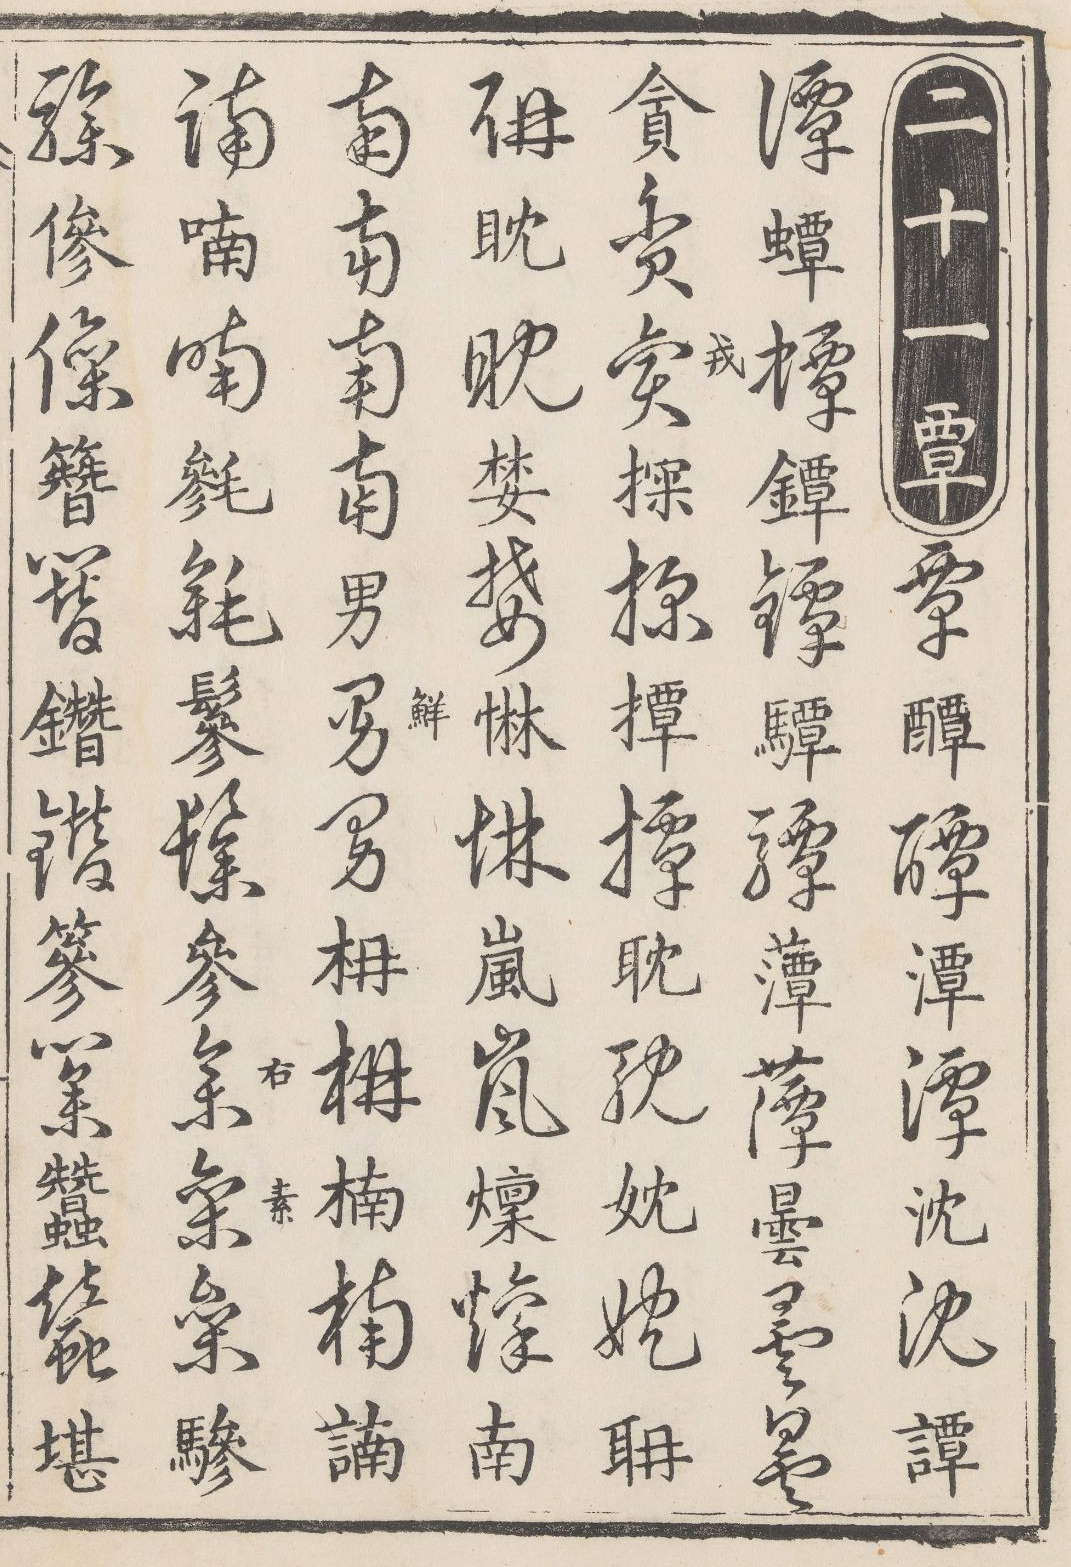 二十一覃覃醰醰潭潭沈沈譚
譚蟫蟫鐔鐔驔驔藫藫曇曇曇
戎
貪貪貪探探撢撢耽耽妉妉聃
聃眈眈婪婪惏惏嵐嵐燣燣南
鮮
南南南南男男男枏枏楠楠諵
右
素
諵喃喃毿毿鬖鬖參參參參驂
驂傪傪簪簪鐕鐕篸篸蠶蠶堪